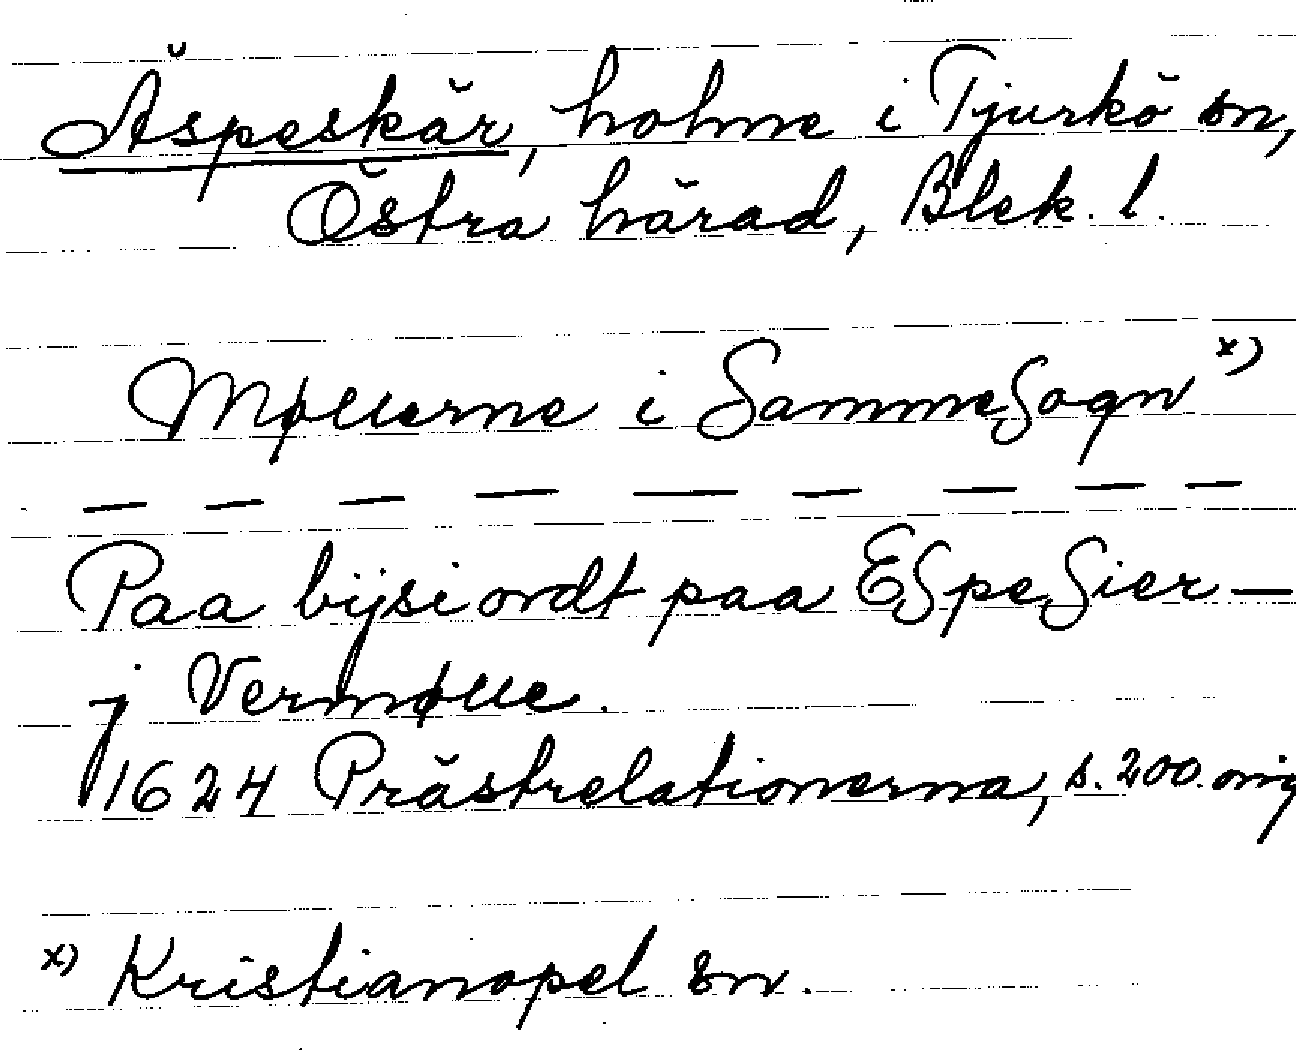 Äspeskär, holme i Tjurkö sn,
Östra härad, Blek. l.
Møllerne i Samme Sogn x)
— — — — — — — — —
Paa bijsiordt paa ESpeSier —
j Vermølle.
1624 Prästrelationerna, s. 200. orig
x) Kristianopel sn.